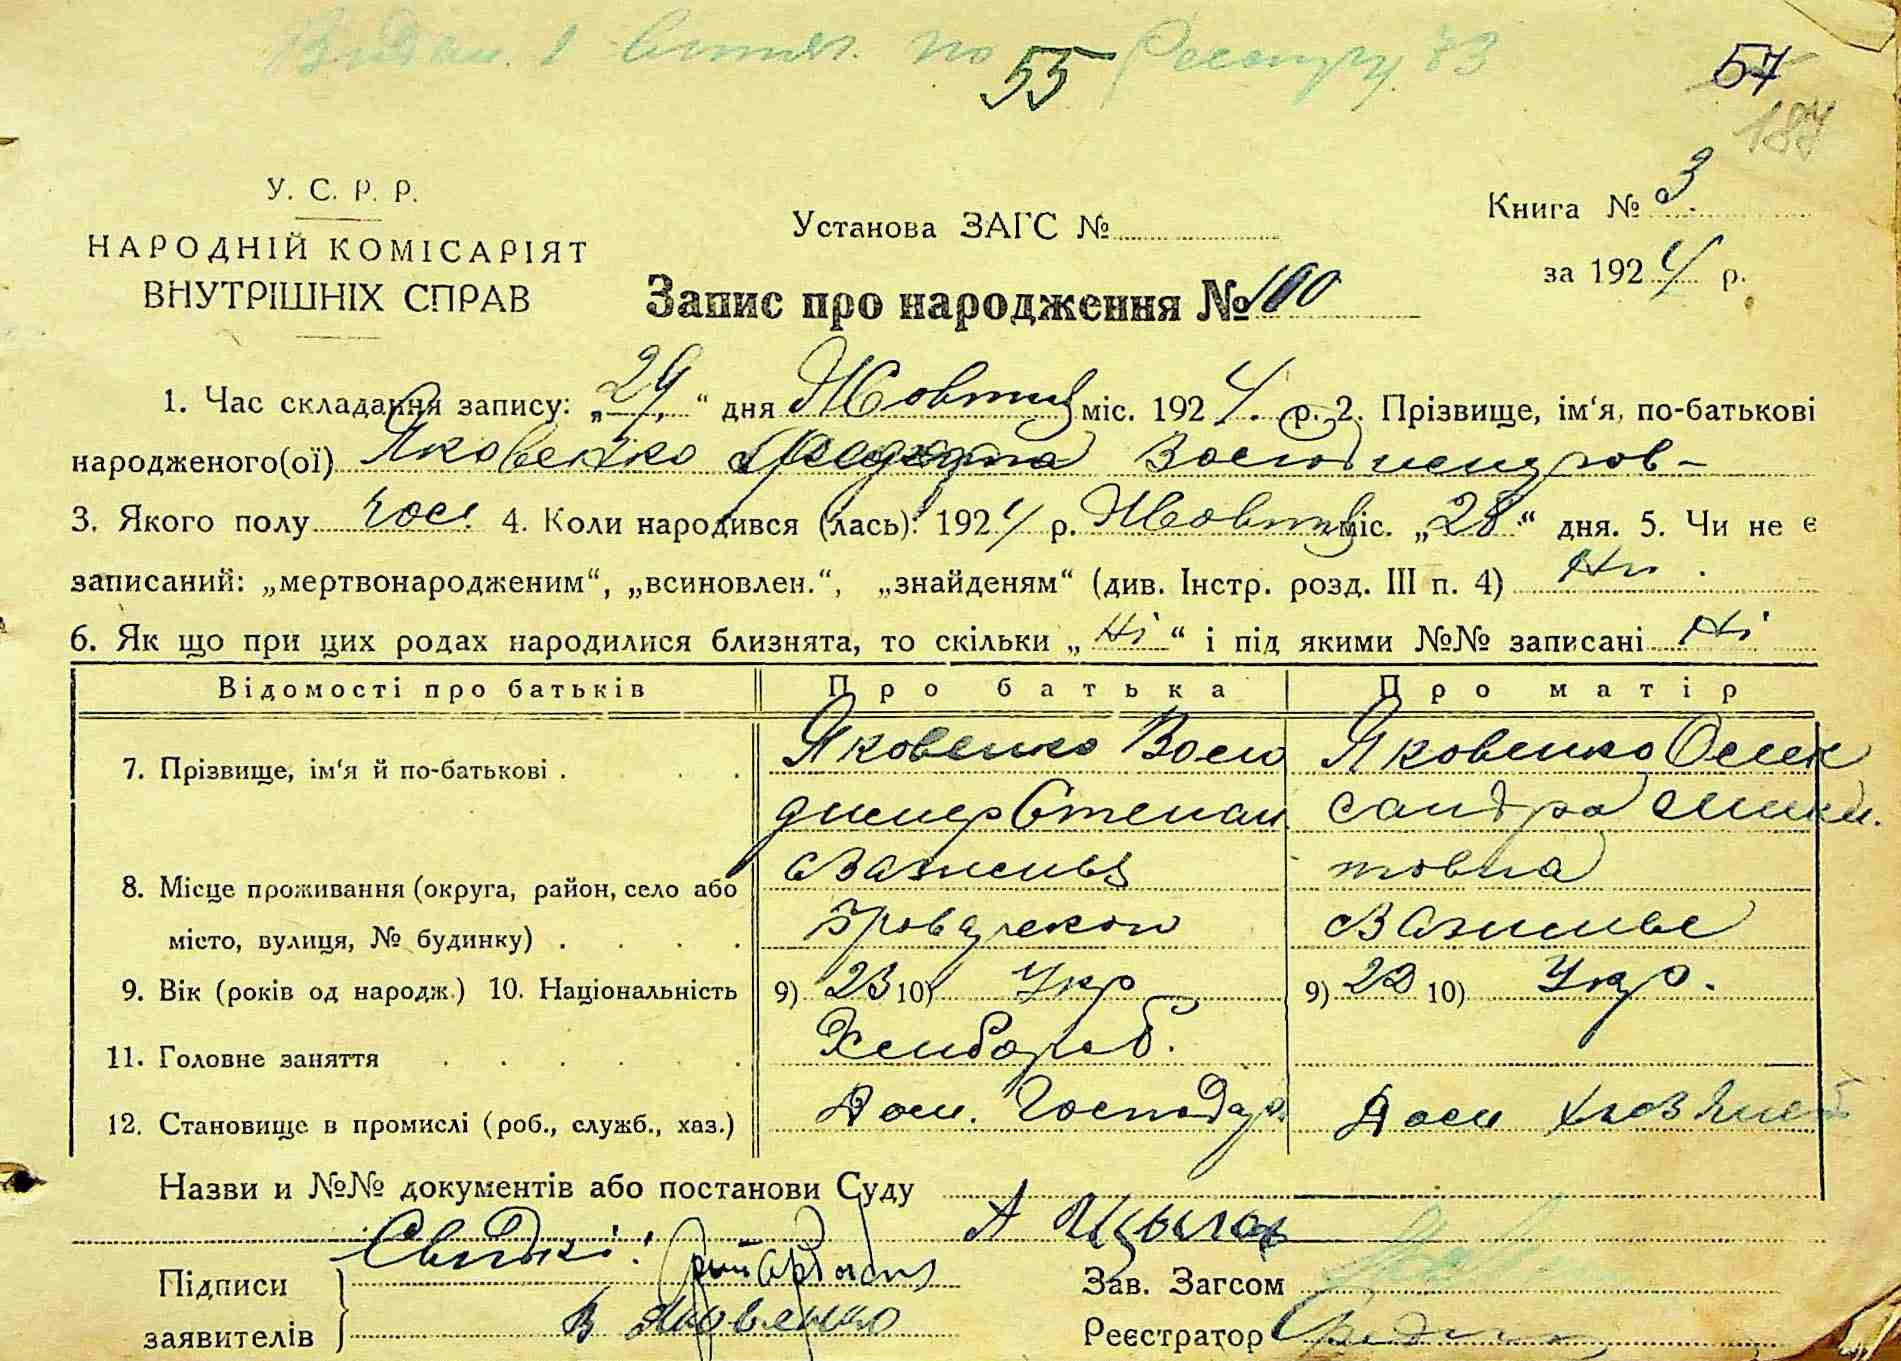 Видан. 1 витяг. по Реєстру 73
55
57
187
У. С. Р. Р.
НАРОДНІЙ КОМІСАРІЯТ
ВНУТРІШНІХ СПРАВ
Установа ЗАГС №
Книга № 3
за 1924 р.
Запис про народження № 100
1. Час складання запису: „29“ дня Жовтня міс. 1924 р. 2. Прізвище, ім‘я, по-батькові
народженого(ої) Яковенко Володимиров-
3. Якого полу чол. 4. Коли народився (лась): 1924 р. Жовтня міс. „28“ дня. 5. Чи не є
записаний: „мертвонародженим“, „всиновлен.“, „знайденям“ (див. Інстр. розд. III п. 4) Ни.
6. Як що при цих родах народилися близнята, то скільки „Ні“ і під якими №№ записані Ні
Відомості про батьків Про батька Про матір
7. Прізвище, ім‘я й по-батькові . Яковенко Воло Яковенко Олек
димир Степан сандра Мики.
8. Місце проживання (округа, район, село або товна
місто, вулиця, № будинку) .
9. Вік (років од народж.) 10. Національність 9) 23 10) Укр 9) 22 10) Укр.
11. Головне заняття Хлибороб.
12. Становище в промислі (роб., служб., хаз.) Дом. Господар Дом
Назви и №№ документів або постанови Суду
Свидкі:
Підписи
заявителів В Яковенко
Зав. Загсом
Реєстратор